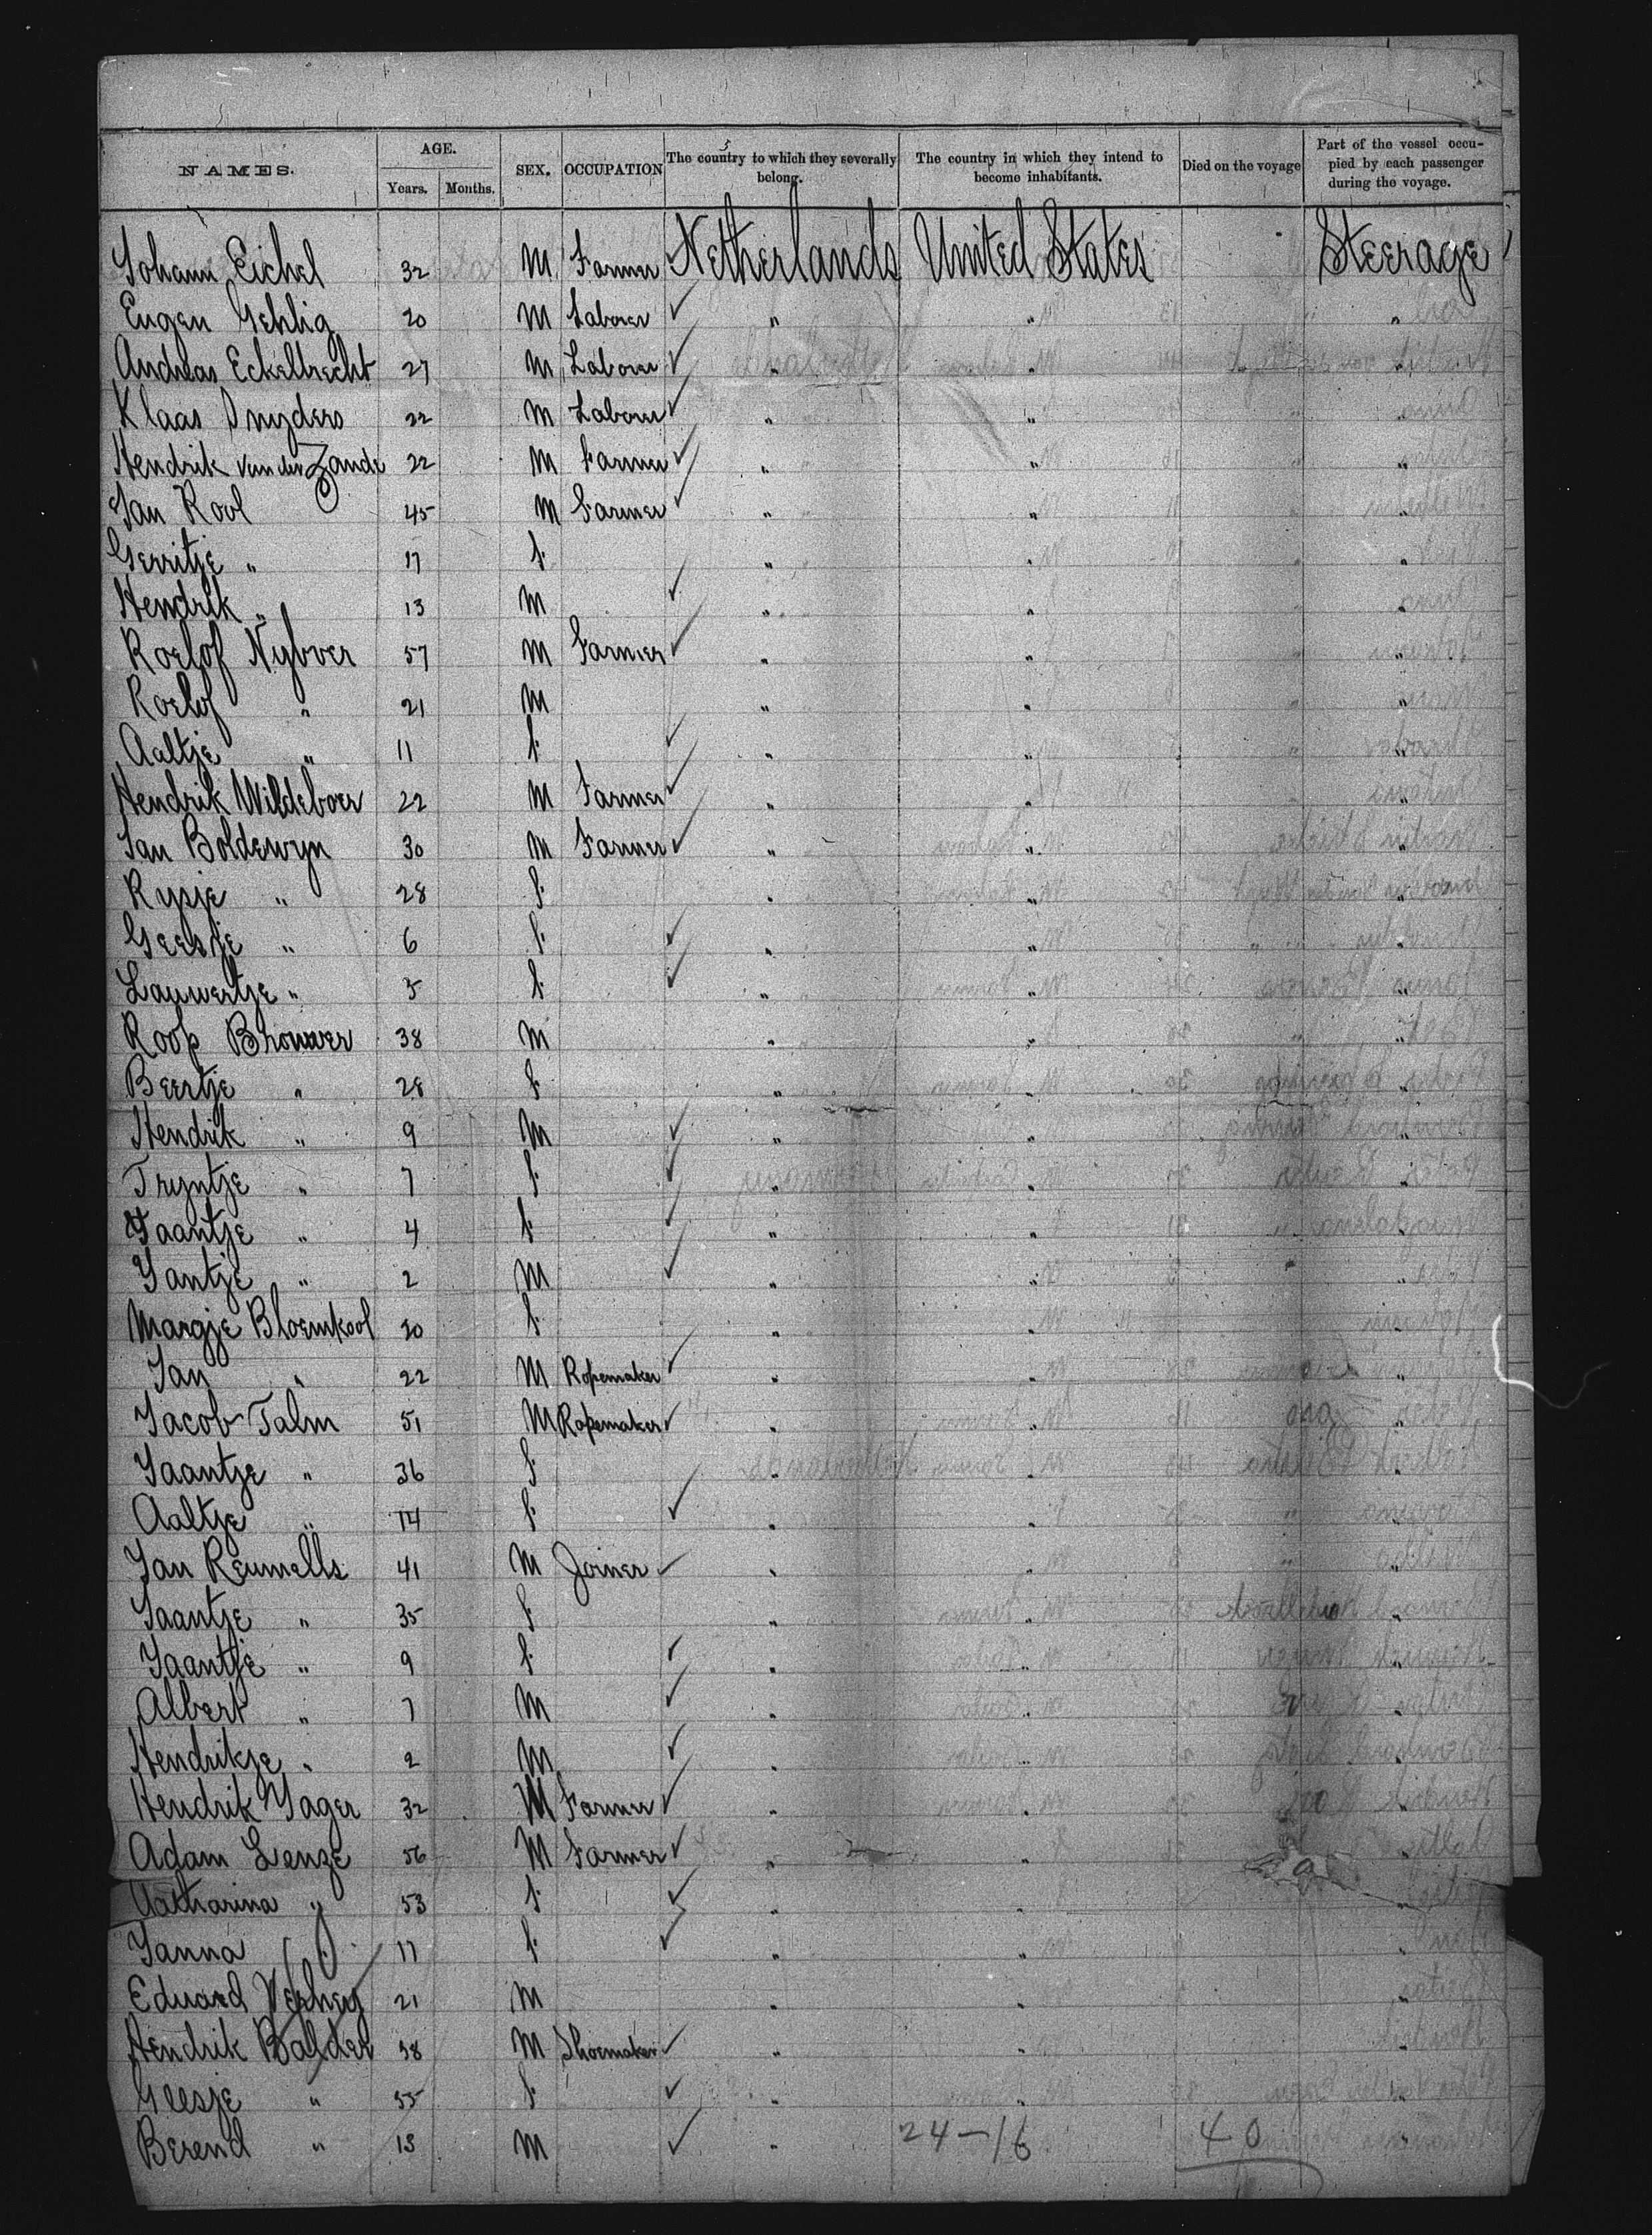 NAMES. AGE. Years. Months. SEX. OCCUPATION The country to which they severally belong. The country in which they intend to become inhabitants. Died on the voyage Part of the vessel occupied by each passenger during the voyage.
Johann Eichel 32 M Farmer Netherlands United States Steerage
Eugen Gehlig 20 M Laborer " " "
Andreas Eckelbrecht 27 M Laborer " " "
Klaas Snyders 22 M Laborer " " "
Hendrik van der Zande 22 M Farmer " " "
Jan Kool 45 M Farmer " " "
Gerritje " 17 f. " " "
Hendrik " 13 M " " "
Roelof Nyvver 57 M Farmer " " "
Roelof " 21 M " " "
Aaltje " 11 f. " " "
Hendrik Wildeboer 22 M Farmer " " "
Jan Boldewyn 30 M Farmer " " "
Rysje " 28 f. " " "
Geesje " 6 f. " " "
Lauwertje " 3 f. " " "
Roof Brouwer 38 M " " "
Beertje " 28 f. " " "
Hendrik " 9 M " " "
Tryntje " 7 f. " " "
Jaantje " 4 f. " " "
Jantje " 2 M " " "
Margje Bloemkool 20 f. " " "
Jan " 22 M Ropemaker " " "
Jacob Talm 51 M Ropemaker " " "
Jaantje " 36 f. " " "
Aaltje " 14 f. " " "
Jan Reumells 41 M Joiner " " "
Jaantje " 35 f. " " "
Jaantje " 9 f. " " "
Albert " 7 M " " "
Hendrikje " 2 M " " "
Hendrik Jager 32 M Farmer " " "
Adam Lenze 56 M Farmer " " "
Catharina " 53 f. " " "
Janna " 17 f. " " "
Eduard Verhey 21 M " " "
Hendrik Balder 58 M Shoemaker " " "
Geesje " 55 f. " " "
Berend " 13 M " 24-16 40